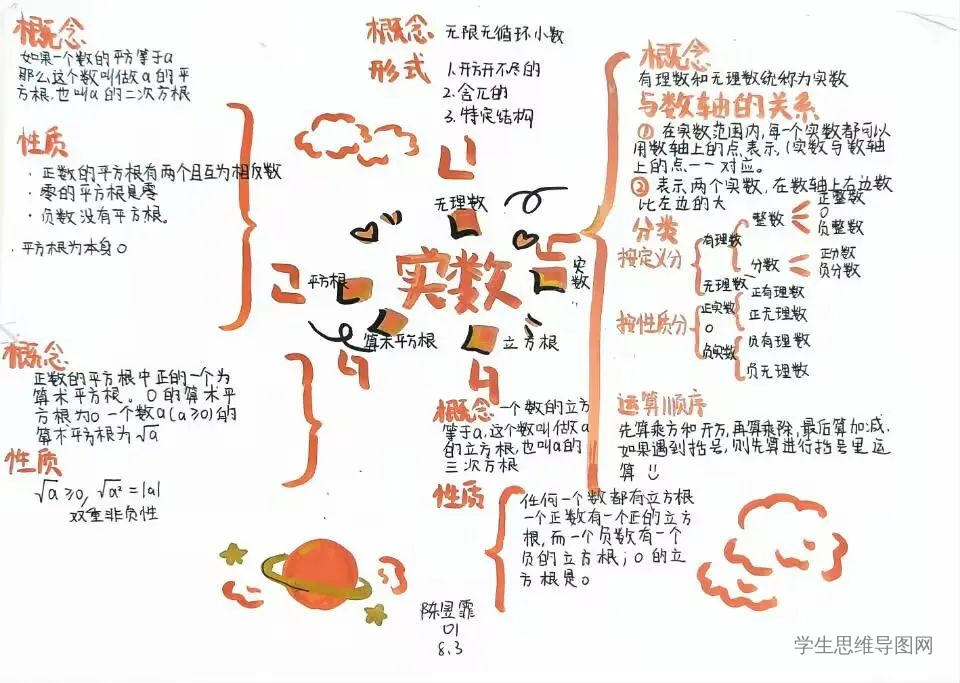 概念
如果一个数的平方等于a
那么这个数叫做a的平
方根,也叫a的二次方根
性质
· 正数的平方根有两个且互为相反数
· 零的平方根是零
· 负数没有平方根。
· 平方根为本身0
概念
正数的平方根中正的一个为
算术平方根。0的算术平
方根为0一个数a(a≥0)的
算术平方根为√a
性质
√a≥0, √a²=|a|
双重非负性
概念 无限无循环小数
形式
1.开方开不尽的
2.含π的
3.特定结构
无理数
实数
平方根
实
数
算术平方根
立方根
概念 一个数的立方
等于a,这个数叫做a
的立方根,也叫a的
三次方根
性质
任何一个数都有立方根
一个正数有一个正的立方
根,而一个负数有一个
负的立方根;0的立
方根是0
概念
有理数和无理数统称为实数
与数轴的关系
① 在实数范围内,每一个实数都可以
用数轴上的点表示,(实数与数轴
上的点一一对应。
② 表示两个实数,在数轴上右边数
比左边的大
分类
按定义分
有理数
整数
正整数
0
负整数
分数
正分数
负分数
无理数
按性质分
正实数
正有理数
正无理数
0
负实数
负有理数
负无理数
运算顺序
先算乘方和开方,再算乘除,最后算加减,
如果遇到括号,则先算进行括号里运
算
陈昱霏
01
8.3
学生思维导图网